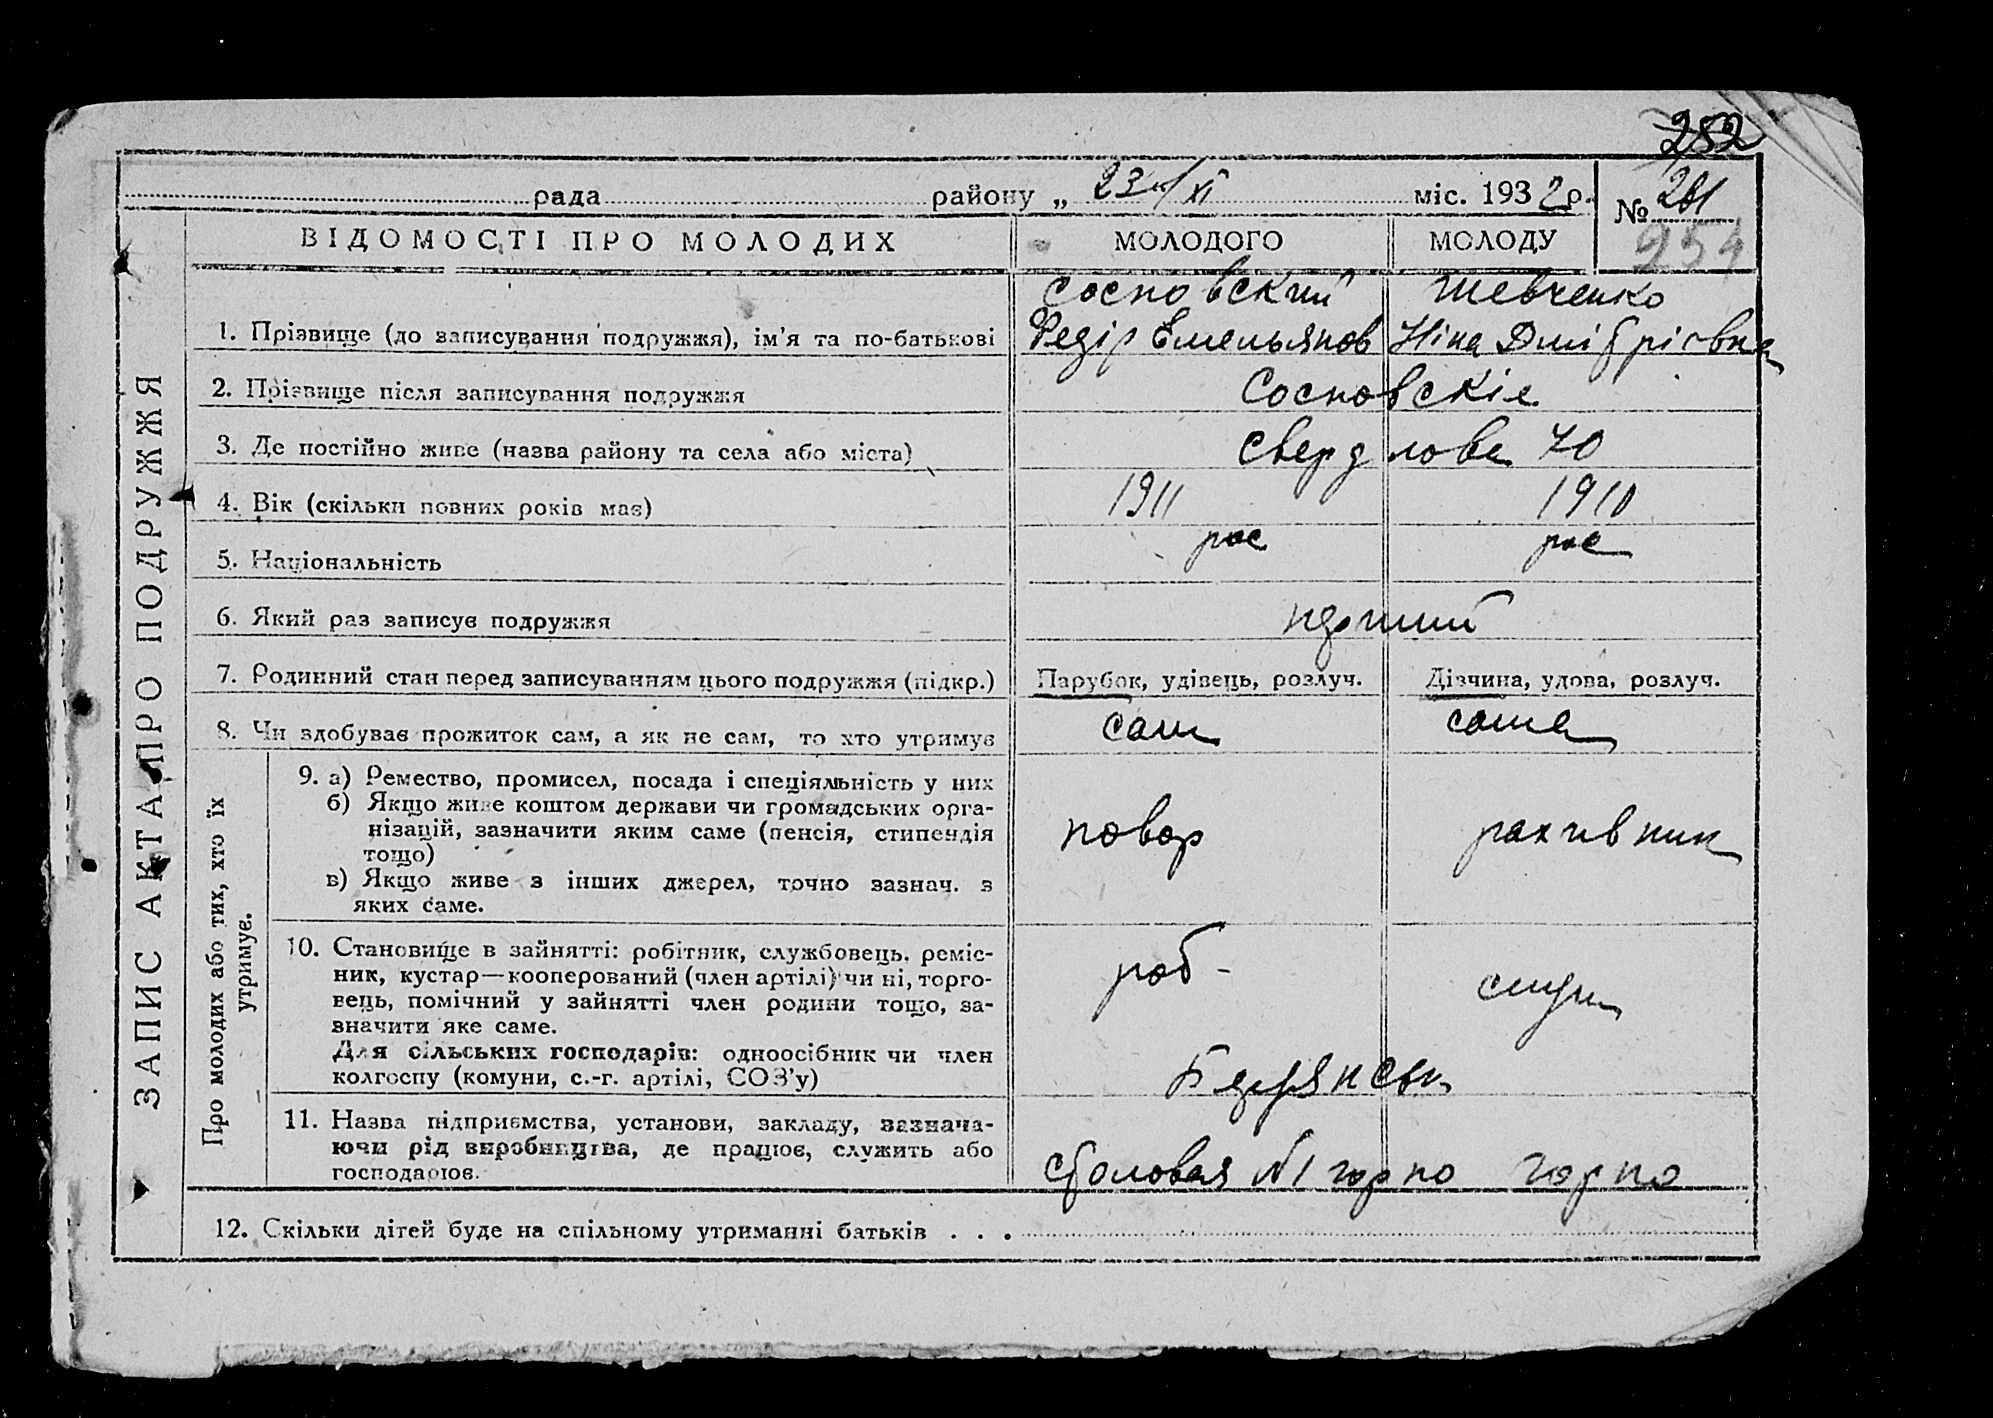 252
рада району „ 23/XI міс. 1932 р. № 281
254
ЗАПИС АКТА ПРО ПОДРУЖЖЯ
ВІДОМОСТІ ПРО МОЛОДИХ МОЛОДОГО МОЛОДУ
Сосновский Шевченко
1. Прізвище (до записування подружжя), ім'я та по-батькові Федір Емельянов Ніна Дмітрієвна
2. Прізвище після записування подружжя Сосновскіе
3. Де постійно живе (назва району та села або міста) Свердлова 70
4. Вік (скільки повних років має) 1911 1910
5. Національність рос рос
6. Який раз записує подружжя перший
7. Родинний стан перед записуванням цього подружжя (підкр.) Парубок, удівець, розлуч. Дівчина, удова, розлуч.
8. Чи здобуває прожиток сам, а як не сам, то хто утримує сам сама
Про молодих або тих, хто їх
утримує.
9. а) Ремество, промисел, посада і спеціяльність у них
б) Якщо живе коштом держави чи громадських орга-
нізацій, зазначити яким саме (пенсія, стипендія
тощо)
в) Якщо живе з інших джерел, точно зазнач. з
яких саме.
повар рахивник
10. Становище в зайнятті: робітник, службовець, реміс-
ник, кустар—кооперований (член артілі) чи ні, торго-
вець, помічний у зайнятті член родини тощо, за-
значити яке саме.
Для сільських господарів: одноосібник чи член
колгоспу (комуни, с.-г. артілі, СОЗ'у)
роб-
11. Назва підприємства, установи, закладу, зазнача-
ючи рід виробництва, де працює, служить або
господарює.
Столовая №1 горпо горпо
12. Скільки дітей буде на спільному утриманні батьків . . .